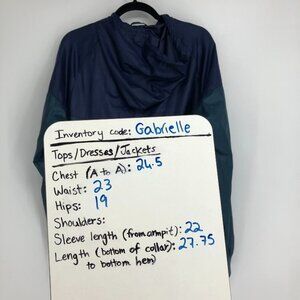 Inventory code: Gabrielle
Tops/Dresses/Jackets
Chest (A to A): 24.5
Waist: 23
Hips: 19
Shoulders:
Sleeve length (from armpit): 22
Length (bottom of collar): 27.75
to bottom hem)